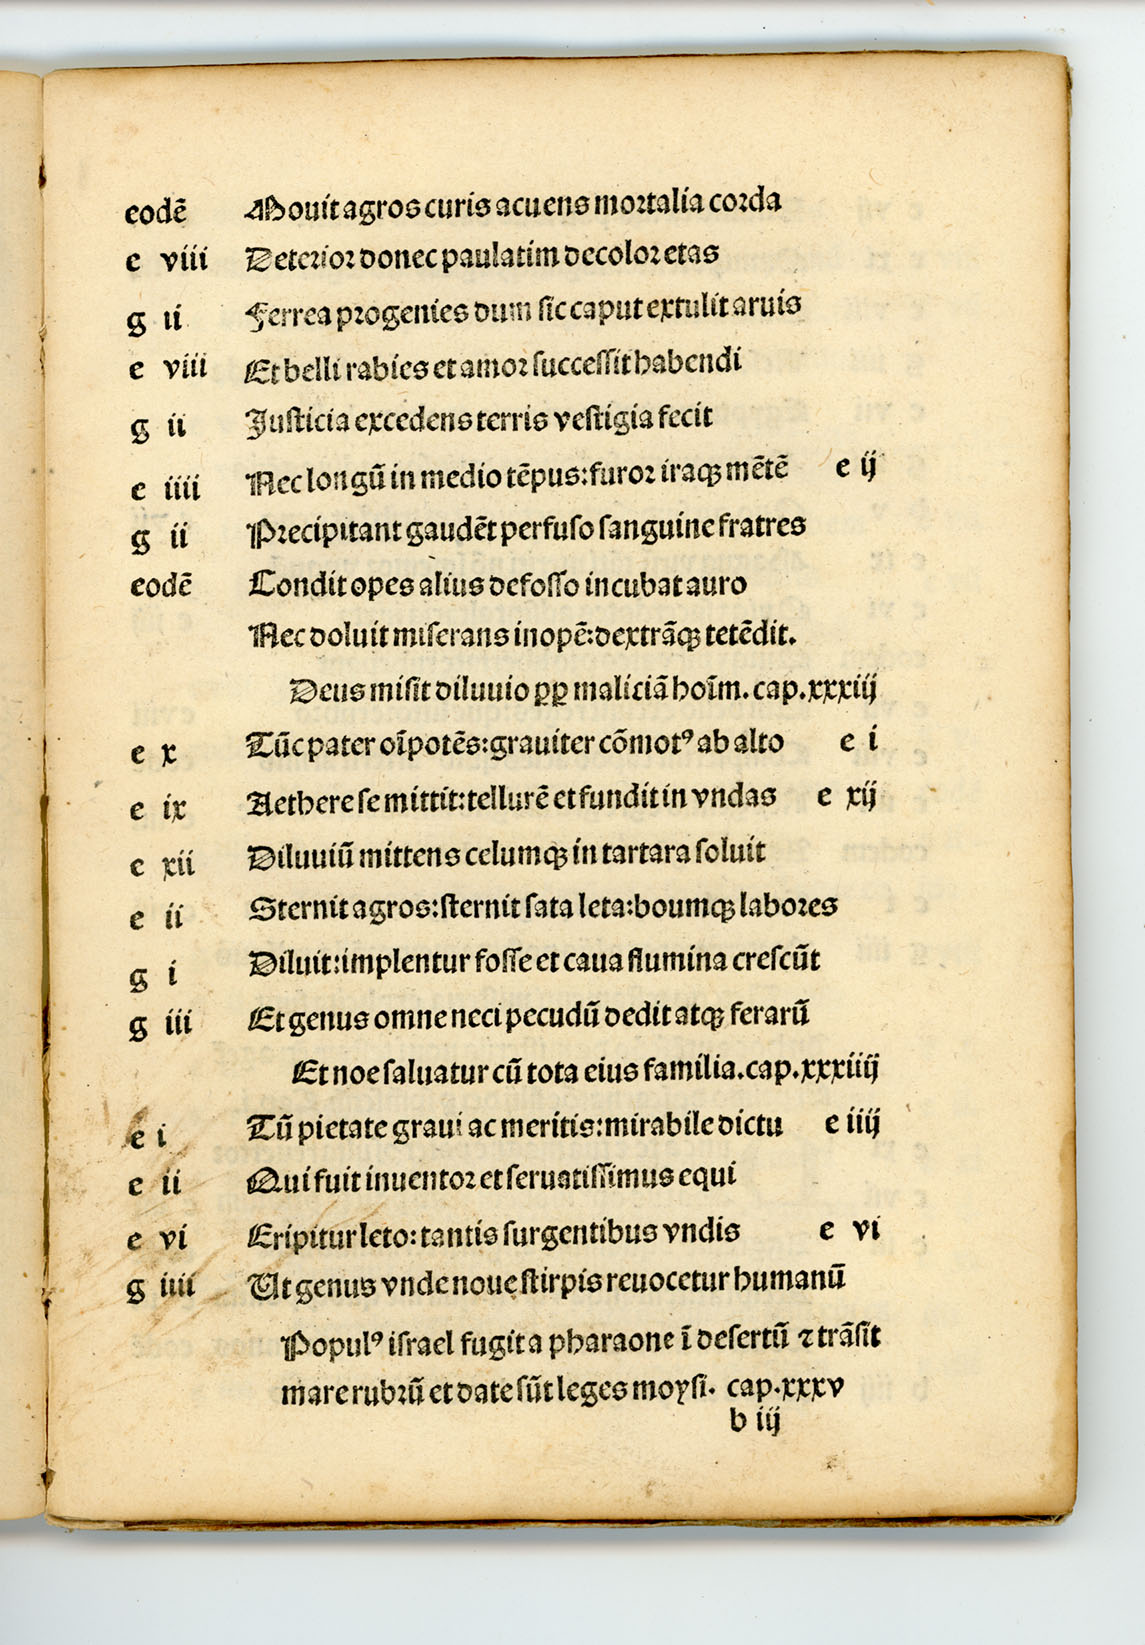 eodē Mouit agros curis acuens mortalia corda
e viii Deterior donec paulatim decolor etas
g ii Ferrea progenies dum sic caput extulit aruis
e viii Et belli rabies et amor successit habendi
g ii Justicia excedens terris vestigia fecit
e iiii Nec longū in medio tēpus: furor iraqꝫ mētē e ij
g ii Precipitant gaudēt perfuso sanguine fratres
eodē Condit opes alius defosso incubat auro
Nec doluit miserans inopē: dextrāqꝫ tetēdit.
Deus misit diluuio ꝑꝑ maliciā hoīm. cap. xxxiij
e x Tūc pater oīpotēs: grauiter cōmotꝰ ab alto e i
e ix Aethere se mittit: tellurē et fundit in vndas e xij
e xii Diluuiū mittens celumqꝫ in tartara soluit
e ii Sternit agros: sternit sata leta: boumqꝫ labores
g i Diluit: implentur fosse et caua flumina crescūt
g iii Et genus omne neci pecudū dedit atqꝫ ferarū
Et noe saluatur cū tota eius familia. cap. xxxiiij
e i Tū pietate graui ac meritis: mirabile dictu e iiij
e ii Qui fuit inuentor et seruatissimus equi
e vi Eripitur leto: tantis surgentibus vndis e vi
g iiii Ut genus vnde noue stirpis reuocetur humanū
Populꝰ israel fugit a pharaone ī desertū ⁊ trāsit
mare rubrū et date sūt leges moysi. cap. xxxv
b iij